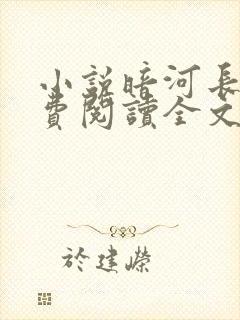 小説暗河長
費閱讀全文
於建嶸